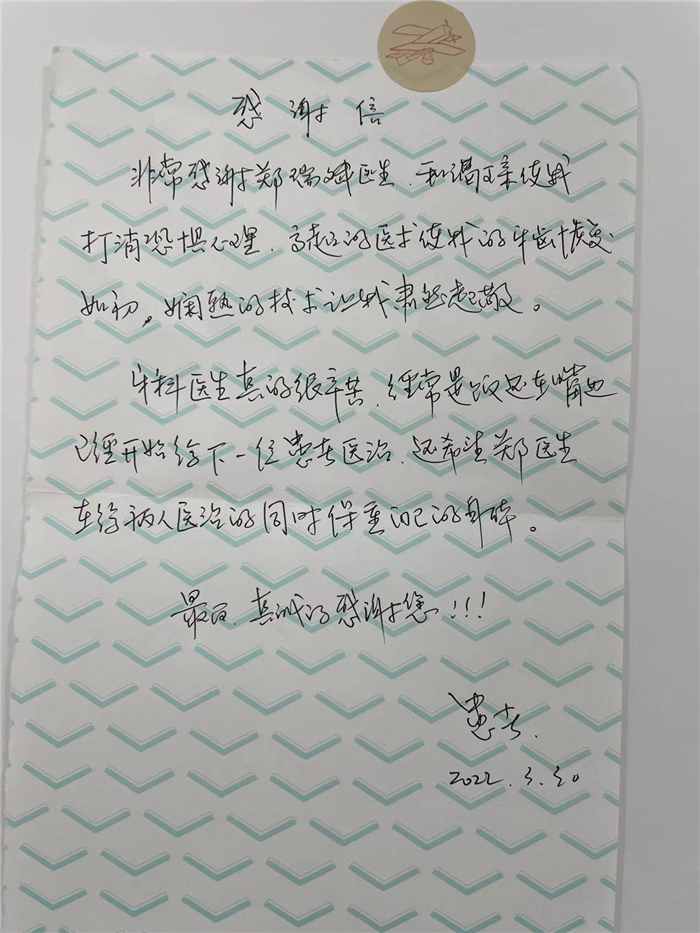 感谢信
非常感谢郑瑞斌医生，和谒可亲使我
打消恐惧心理，高超的医术使我的牙齿恢复
如初。娴熟的技术让我肃然起敬。
牙科医生真的很辛苦，经常是饭还在嘴边
已经开始给下一位患者医治，还希望郑医生
在给病人医治的同时保重自己的身体。
最后，真诚的感谢您！！！
患者.
2022.3.30